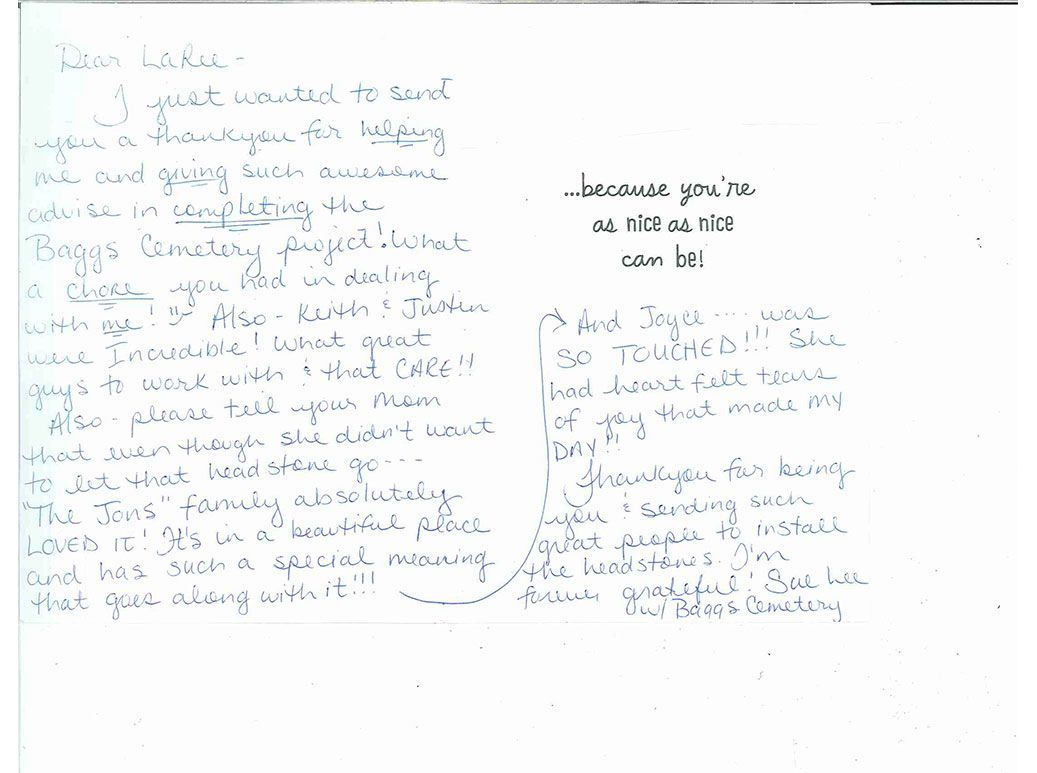 Dear LaRee -
I just wanted to send
you a thankyou for helping
me and giving such awesome
advise in completing the
Baggs Cemetery project! What
a chore you had in dealing
with me! Also - Keith & Justin
were Incredible! What great
guys to work with & that CARE!!
Also - please tell your Mom
that even though she didn't want
to let that headstone go---
"The Jons" family absolutely
LOVED IT! It's in a beautiful place
and has such a special meaning
that goes along with it!!!
...because you're
as nice as nice
can be!
And Joyce .... was
SO TOUCHED!!! She
had heart felt tears
of joy that made my
DAY!!
Thankyou for being
you & sending such
great people to install
the headstones. I'm
forever grateful! Sue Lee
w/ Baggs Cemetery